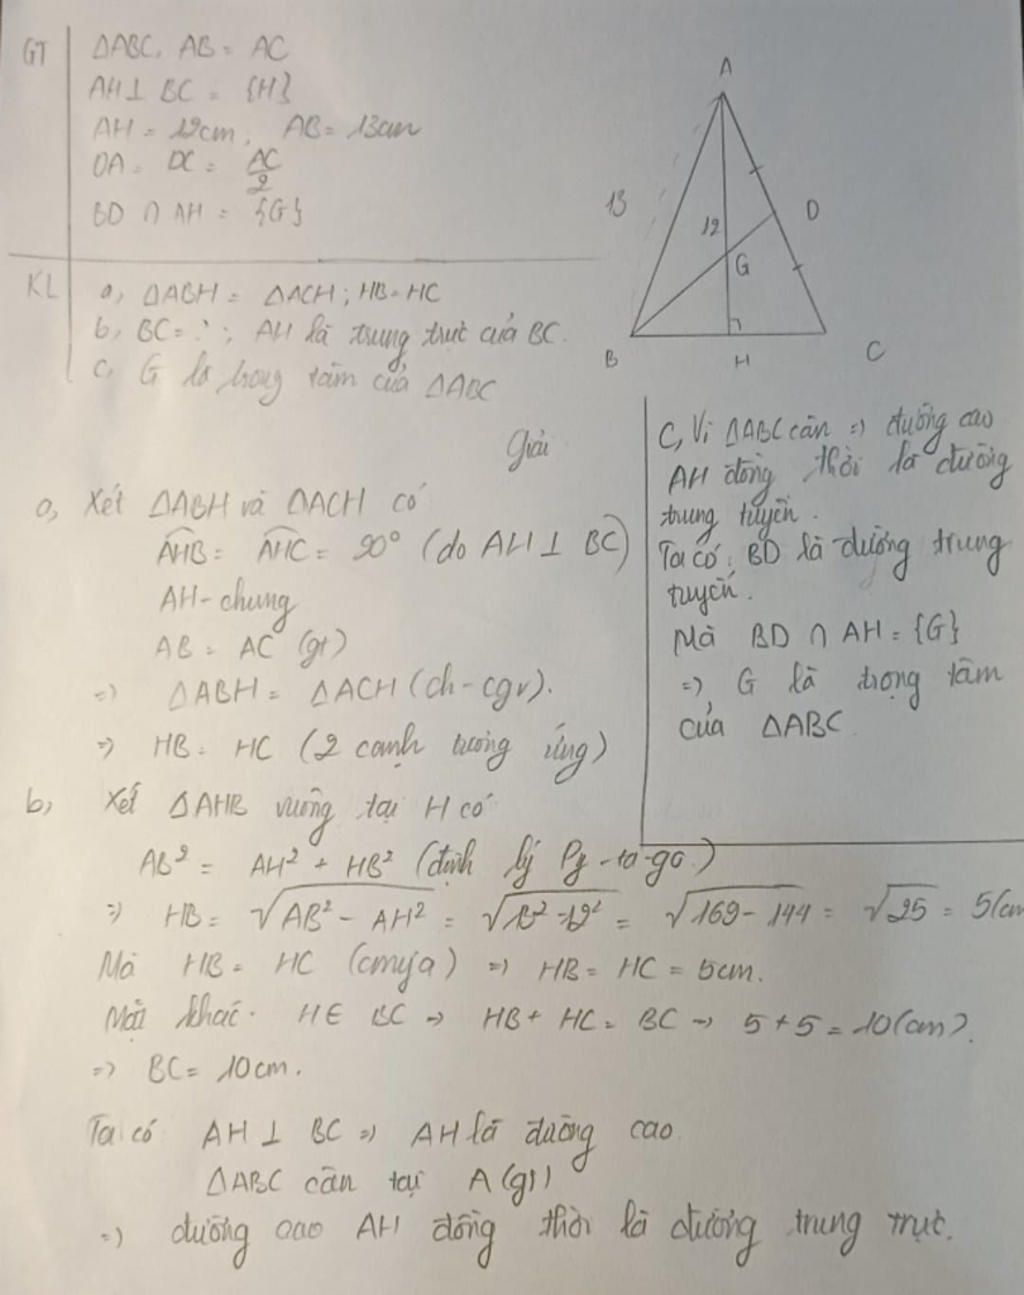 GT
ΔABC, AB = AC
AH ⊥ BC = {H}
AH = 12cm, AB = 13cm
DA = DC = AC/2
BD ∩ AH = {G}
KL
a, ΔABH = ΔACH; HB = HC
b, BC = ?; AH là trung trực của BC.
c, G là trọng tâm của ΔABC
A
13
D
12
G
B
H
C
Giải
a, Xét ΔABH và ΔACH có
AHB = AHC = 90° (do AH ⊥ BC)
AH - chung
AB = AC (gt)
=> ΔABH = ΔACH (ch - cgv).
=> HB = HC (2 cạnh tương ứng)
b, Xét ΔAHB vuông tại H có
AB² = AH² + HB² (định lý Py-ta-go)
=> HB = √AB² - AH² = √13² - 12² = √169 - 144 = √25 = 5(cm
Mà HB = HC (cm ý a) => HB = HC = 5cm.
Mặt khác. H ∈ BC -> HB + HC = BC -> 5 + 5 = 10(cm).
=> BC = 10cm.
Ta có AH ⊥ BC => AH là đường cao
ΔABC cân tại A (gt)
=> đường cao AH đồng thời là đường trung trực.
C, Vì ΔABC cân => đường cao
AH đồng thời là đường
trung tuyến.
Ta có: BD là đường trung
tuyến.
Mà BD ∩ AH = {G}
=> G là trọng tâm
của ΔABC